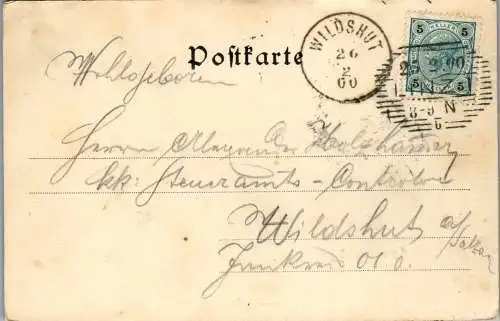 Postkarte
WILDSHUT
26
2
00
5 5
5 5
25 2 00
LINZ
8-9 N
5
Wohlgeboren
Herrn Alexander Holzhammer
kk: Steueramts-Controlor
Wildshut a/Salzach
Innkreis O.Ö.